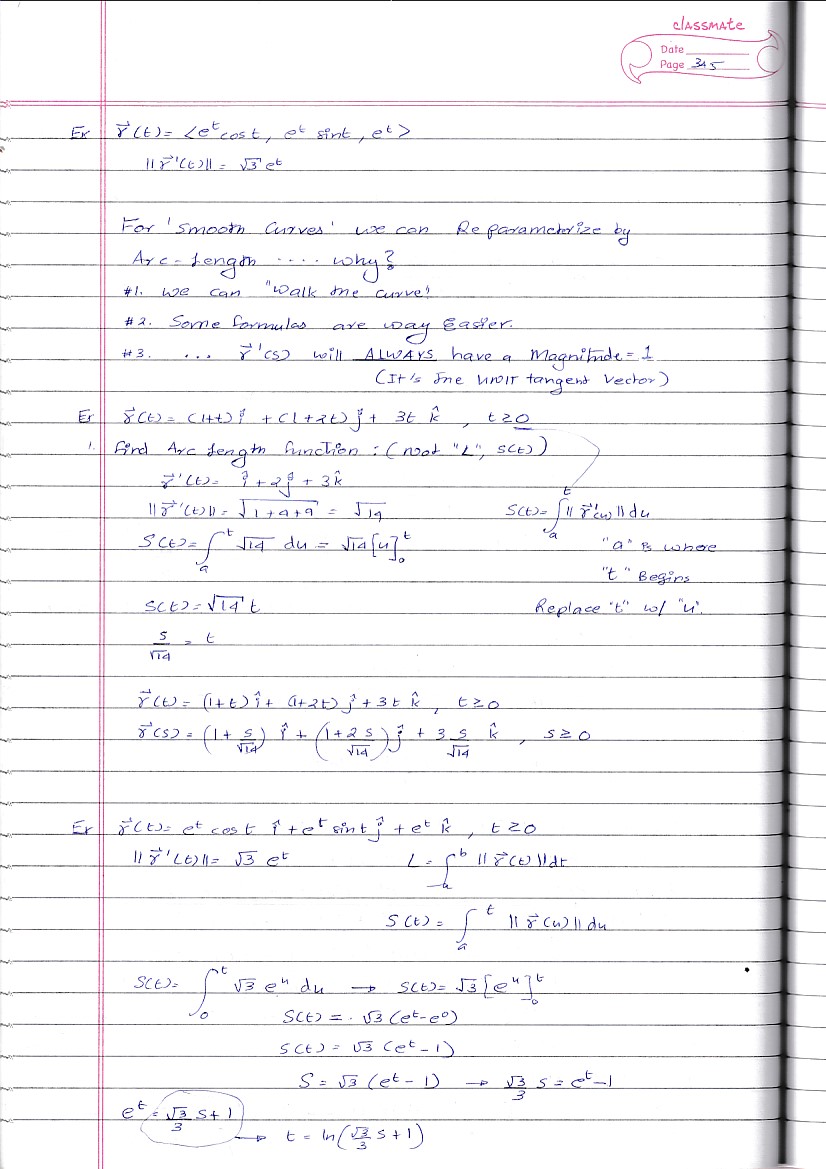 classmate
Date
Page 345
Ex r⃗(t) = <e^t cos t, e^t sin t, e^t>
||r⃗'(t)|| = √3 e^t
For 'Smooth Curves' we can Reparameterize by
Arc-Length .... why?
#1. we can "Walk the curve"
#2. Some formulas are way Easier.
#3. ... r⃗'(s) will ALWAYS have a Magnitude = 1
(It's the UNIT tangent Vector)
Ex r⃗(t) = (1+t)î + (1+2t)ĵ + 3t k̂ , t ≥ 0
1. Find Arc Length function : (not "L", s(t))
r⃗'(t) = î + 2ĵ + 3k̂
||r⃗'(t)|| = √(1+4+9) = √14 S(t) = ∫_a^t ||r⃗'(u)|| du
S(t) = ∫_a^t √14 du = √14 [u]_0^t "a" is where
"t" Begins
S(t) = √14 t Replace "t" w/ "u".
s/√14 = t
r⃗(t) = (1+t)î + (1+2t)ĵ + 3t k̂ , t ≥ 0
r⃗(s) = (1 + s/√14) î + (1 + 2s/√14) ĵ + 3 s/√14 k̂ , s ≥ 0
Ex r⃗(t) = e^t cos t î + e^t sin t ĵ + e^t k̂ , t ≥ 0
||r⃗'(t)|| = √3 e^t L = ∫_a^b ||r⃗(t)|| dt
S(t) = ∫_a^t ||r⃗(u)|| du
S(t) = ∫_0^t √3 e^u du → S(t) = √3 [e^u]_0^t
S(t) = √3 (e^t - e^0)
S(t) = √3 (e^t - 1)
S = √3 (e^t - 1) → √3/3 s = e^t - 1
e^t = √3/3 s + 1
→ t = ln(√3/3 s + 1)